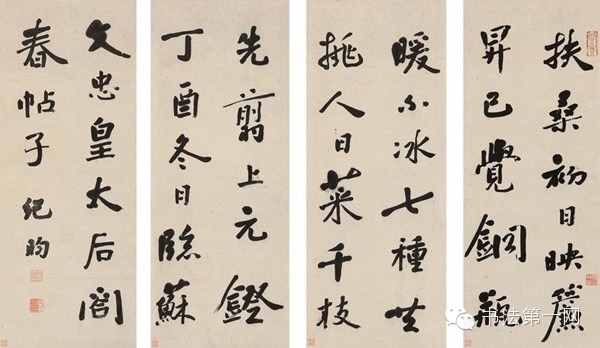 扶桑初日映簾
昇已覺銅瓶
暖不冰七種共
挑人日菜千枝
先翦上元鐙
丁酉冬日臨蘇
文忠皇太后閤
春帖子 紀昀
书法第一网